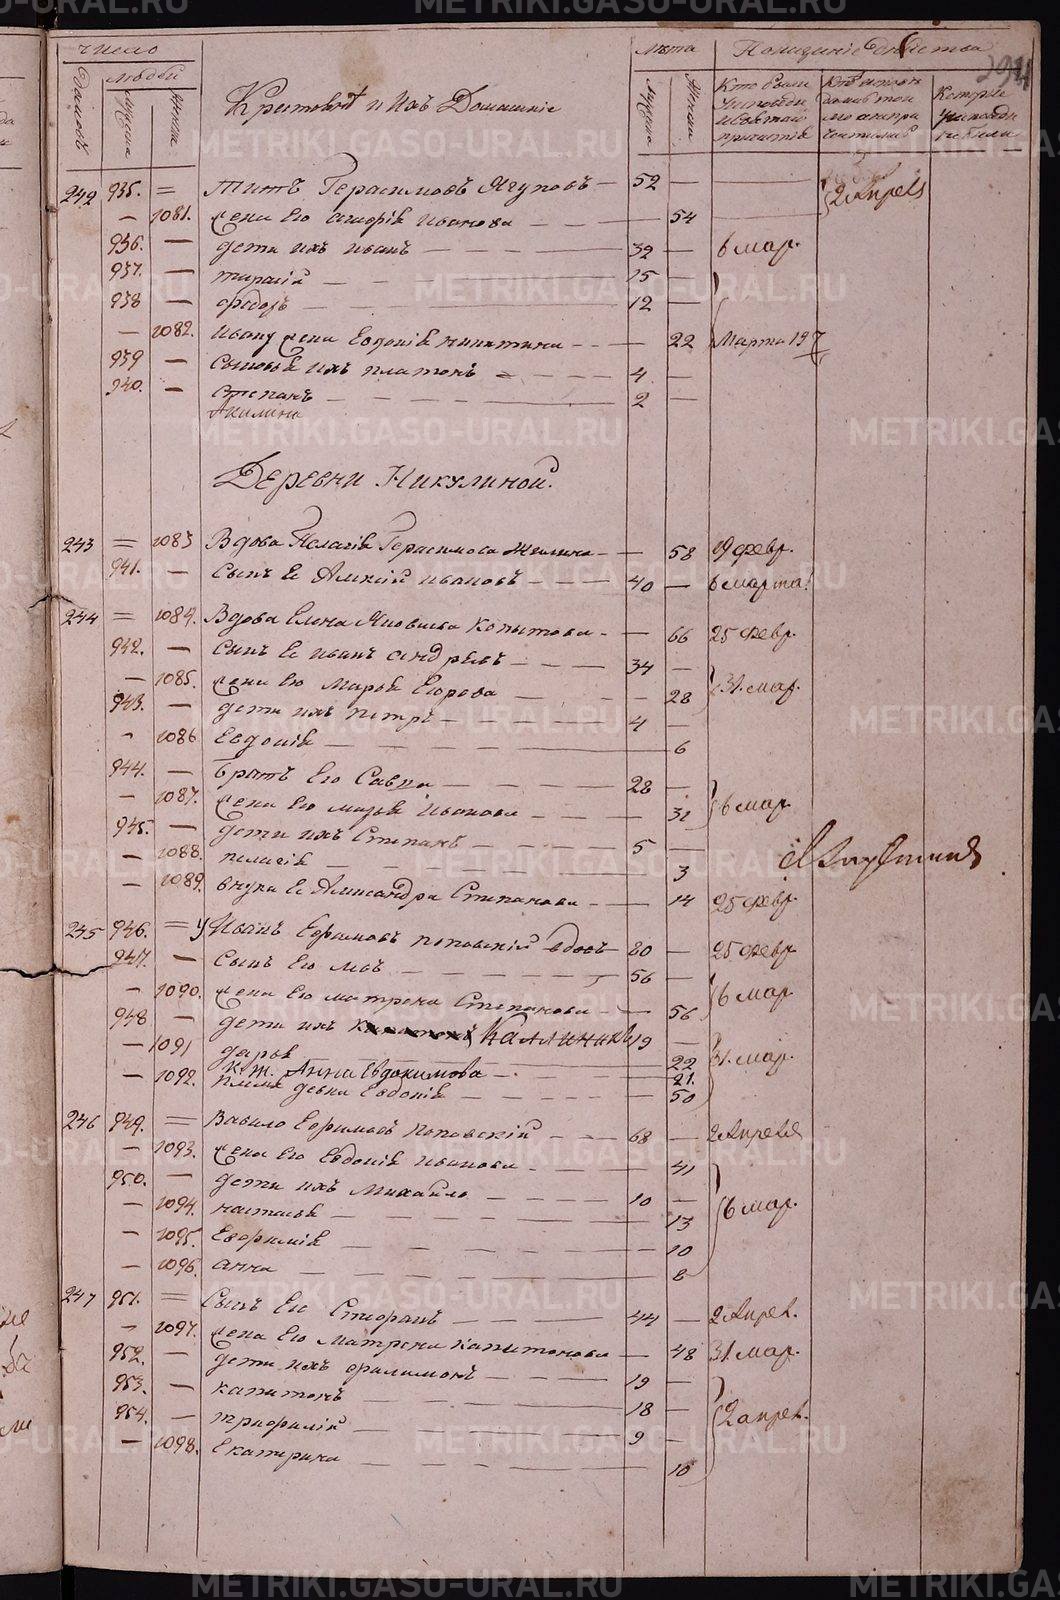 число Лѣта Показаніе дѣйства
людей
домовъ мужска женска Крестьянѣ и Ихъ Домашніе мужска женска Кто были у исповеди и святой причастія Которые у исповеди не были
242 935. = Титъ Герасимовъ Ягуповъ — 52 — 2 Апреля
— 1081. жена его Иванова — 54
936. — дети ихъ иванъ — 32 — 6 мар.
937. — — 15 —
938 — федоръ — 12 —
— 1082. ивану жена Евдокія никитина — 22 Марта 19
939 — сыновья ихъ платонъ — 4 —
940. — степанъ — 2 —
Акилина
Деревни Никулиной.
243 = 1083 Вдова Пелагія Герасимова Жилина — 58 19 февр.
941. — сынъ Ее Алексій ивановъ — 40 — 6 марта
244 = 1084. Вдова Елена Яковлева Копытова — 66 25 февр.
942. — сынъ Ее иванъ андрѣевъ — 34 —
— 1085. жена Ево Марья Егорова — 28 31. мар.
943. — дети ихъ петръ — 4 —
— 1086 Евдокія — 6
944. — братъ Его Савва — 28 —
— 1087. жена Ево марья Иванова — 31 6 мар
945. — дети ихъ Степанъ — 5 —
— 1088. пелагія — 3
— 1089. внука Ее Александра Степанова — 14 25 февр.
245 946. = Иванъ Ефимовъ поповскій вдовъ 80 — 25 февр.
947. — Сынъ Его — 56 —
— 1090. жена Ево матрена Степанова — 56 6 мар
948 — дети ихъ Каллиникъ 19 —
— 1091 дарья — 22 31. мар.
К. Ж. Анна Евдокимова — 21.
— 1092. девка Евдокія — 50
246 949. = Вавило Ефимовъ Поповскій — 68 — 2 Апреля
— 1093. жена Его Евдокія иванова — 41
950. — дети ихъ Михайло — 10 —
— 1094. наталья — 13 6 мар.
— 1095. Евфимія — 10
— 1096. анна — 8
247 951. = Сынъ Его Стефанъ — 44 — 2 Апрел.
— 1097. жена Ево Матрена капитонова — 48 31. мар.
952. — дети ихъ филимонъ — 19 —
953. — капитонъ — 18 —
954. — трифилій — 9 — 2 апрел.
— 1098. Екатерина — 10
METRIKI.GASO-URAL.RU